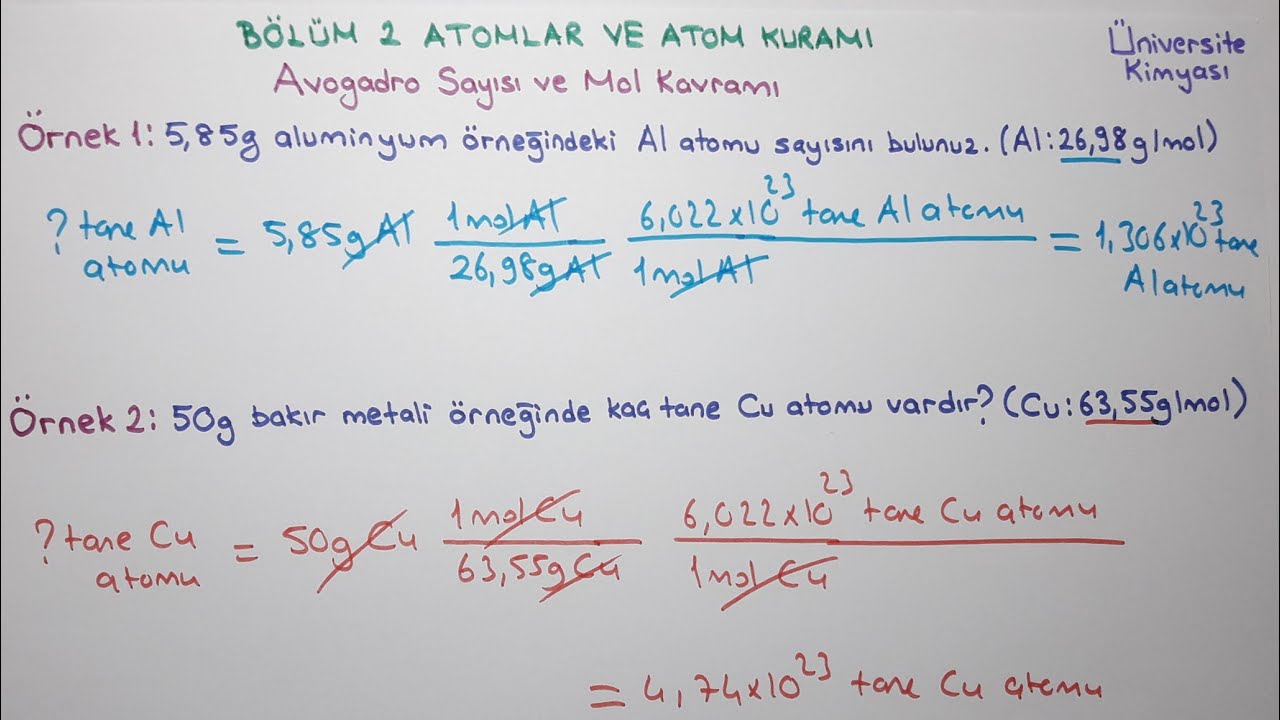 BÖLÜM 2 ATOMLAR VE ATOM KURAMI
Üniversite
Kimyası
Avogadro Sayısı ve Mol Kavramı
Örnek 1: 5,85g aluminyum örneğindeki Al atomu sayısını bulunuz. (Al: 26,98 g/mol)
? tane Al atomu = 5,85g Al 1 mol Al / 26,98g Al 6,022x10²³ tane Al atomu / 1 mol Al = 1,306x10²³ tane Al atomu
Örnek 2: 50g bakır metali örneğinde kaç tane Cu atomu vardır? (Cu: 63,55g/mol)
? tane Cu atomu = 50g Cu 1 mol Cu / 63,55g Cu 6,022x10²³ tane Cu atomu / 1 mol Cu
= 4,74x10²³ tane Cu atomu